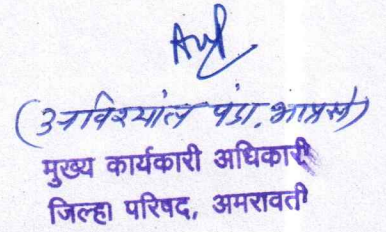 (अविश्यांत पंडा, भाप्रसे)
मुख्य कार्यकारी अधिकारी
जिल्हा परिषद, अमरावती